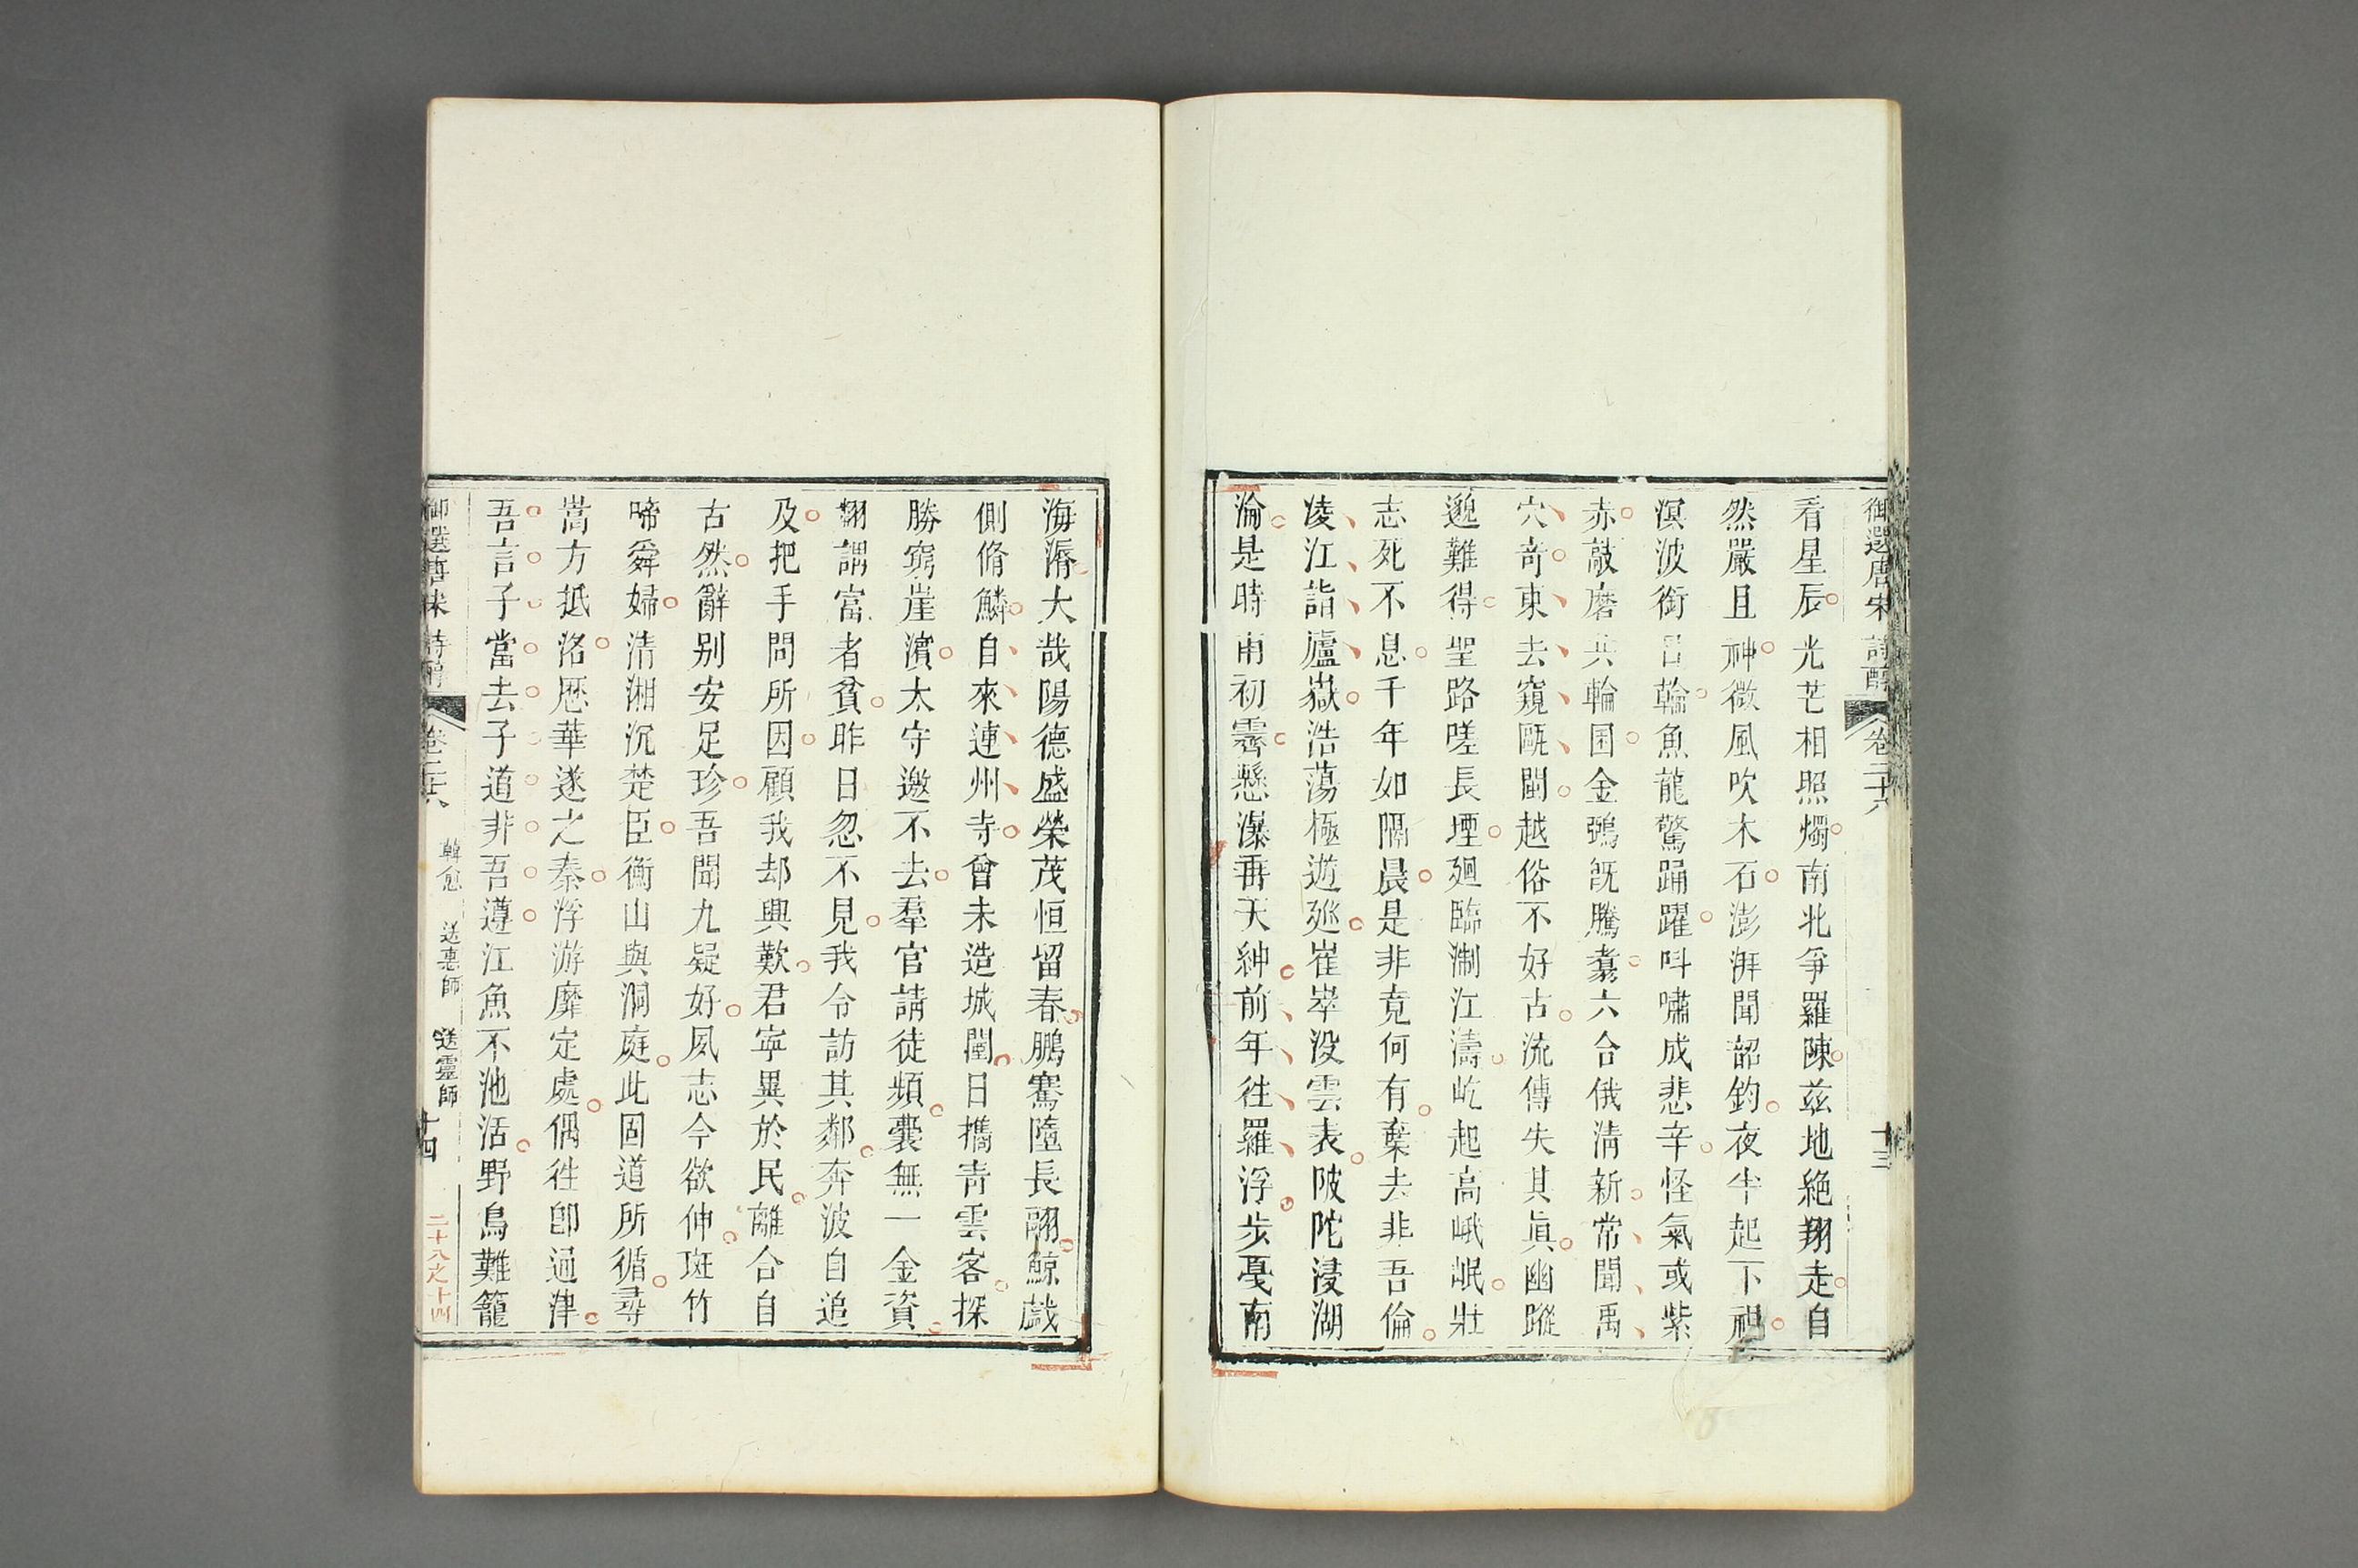 御選唐宋詩醇 卷二十八 十三
看星辰光芒相照燭南北爭羅陳茲地絶翔走自
然嚴且神微風吹木石澎湃聞韶鈞夜半起下視
溟波銜日輪魚龍驚踊躍呌嘯成悲辛怪氣或紫
赤敲磨共輪囷金鵶旣騰翥六合俄淸新常聞禹
穴奇東去窺甌閩越俗不好古流傳失其眞幽蹤
邈難得聖路嗟長堙廻臨淛江濤屹起高峨岷壯
志死不息千年如隔晨是非竟何有棄去非吾倫
凌江詣廬嶽浩蕩極遊廵崔崒没雲表陂陀浸湖
淪是時雨初霽懸瀑垂天紳前年徃羅浮步戞南
海漘大哉陽德盛榮茂恒留春鵬騫墮長翮鯨戯
側脩鱗自來連州寺曾未造城闉日攜靑雲客探
勝窮崖濵太守邀不去羣官請徒頻囊無一金資
翻謂富者貧昨日忽不見我令訪其鄰奔波自追
及把手問所因顧我却興歎君寧異於民離合自
古然辭别安足珍吾聞九疑好夙志今欲伸斑竹
啼舜婦清湘沉楚臣衡山與洞庭此固道所循尋
嵩方抵洛歴華遂之秦浮游靡定處偶徃卽通津
吾言子當去子道非吾遵江魚不池活野鳥難籠
御選唐宋詩醇 卷二十八 韓愈 送惠師 送靈師 十四
二十八之十四